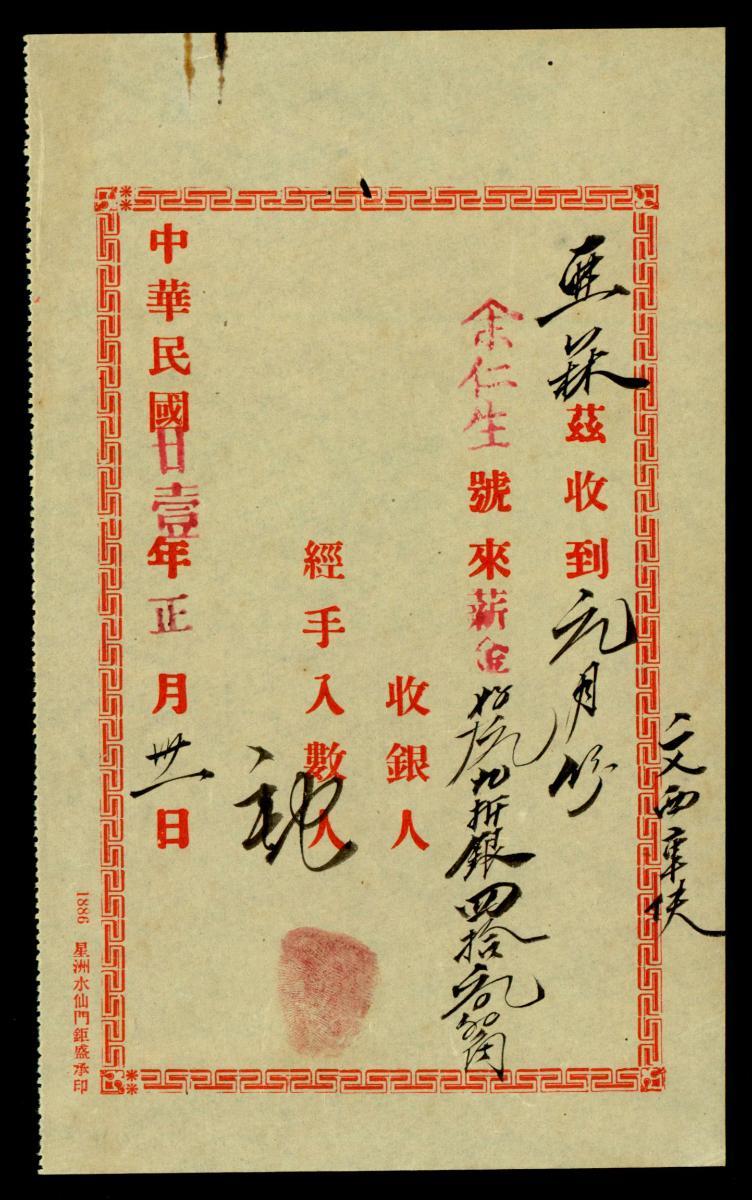 文西車伕
亞蔴茲收到元月份
余仁生號來薪金九折銀四拾
收銀人
經手入數人
中華民國廿壹年正月卅一日
1886 星洲水仙門鉅盛承印